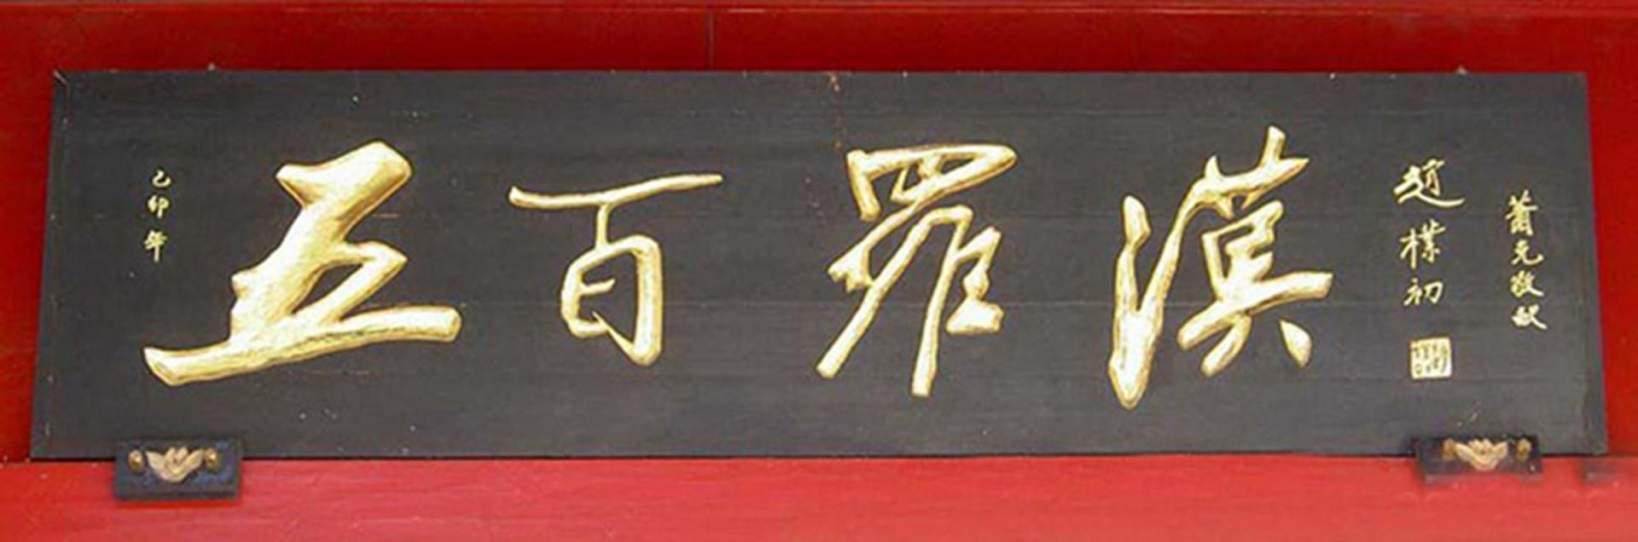 五百羅漢
乙卯年
趙樸初
蕭克敬献